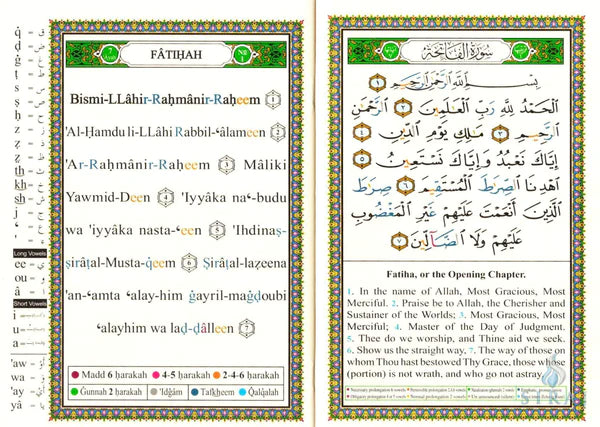 FÂTIḤAH
Nọ 1
Bismi-LLâhir-Raḥmânir-Raḥeem 1
'Al-Ḥamdu li-LLâhi Rabbil-ʿâlameen 2
'Ar-Raḥmânir-Raḥeem 3 Mâliki
Yawmid-Deen 4 'Iyyâka naʿ-budu
wa 'iyyâka nasta-ʿeen 5 'Ihdinaṣ-
ṣirâṭal-Mustaqeem 6 Ṣirâṭal-laẓeena
'an-ʿamta ʿalay-him ġayril-maġḍoubi
ʿalayhim wa laḍ-ḍâlleen 7
Madd 6 ḥarakah 4-5 ḥarakah 2-4-6 ḥarakah
Ġunnah 2 ḥarakah 'Idġâm Tafkheem Qalqalah
q̇ = ق
ḍ = ض
ġ = غ
ṭ = ط
ṣ = ص
ḥ = ح
th = ث
kh = خ
sh = ش
j = ج
Long Vowels
ee =
ou =
â =
Short Vowels
i =
u =
a =
'aw =
wa =
'ay =
yâ =
سُورَةُ الفَاتِحَةِ
بِسْمِ ٱللَّهِ ٱلرَّحْمَٰنِ ٱلرَّحِيمِ ١
ٱلْحَمْدُ لِلَّهِ رَبِّ ٱلْعَٰلَمِينَ ٢ ٱلرَّحْمَٰنِ
ٱلرَّحِيمِ ٣ مَٰلِكِ يَوْمِ ٱلدِّينِ ٤
إِيَّاكَ نَعْبُدُ وَإِيَّاكَ نَسْتَعِينُ ٥
ٱهْدِنَا ٱلصِّرَٰطَ ٱلْمُسْتَقِيمَ ٦ صِرَٰطَ
ٱلَّذِينَ أَنْعَمْتَ عَلَيْهِمْ غَيْرِ ٱلْمَغْضُوبِ
عَلَيْهِمْ وَلَا ٱلضَّآلِّينَ ٧
Fatiha, or the Opening Chapter.
1. In the name of Allah, Most Gracious, Most
Merciful. 2. Praise be to Allah, the Cherisher and
Sustainer of the Worlds; 3. Most Gracious, Most
Merciful; 4. Master of the Day of Judgment.
5. Thee do we worship, and Thine aid we seek.
6. Show us the straight way, 7. The way of those on
whom Thou hast bestowed Thy Grace, those whose
(portion) is not wrath, and who go not astray.